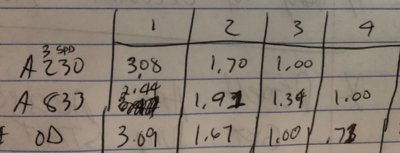 1 2 3 4
3 SPD
A 230 3.08 1.70 1.00
A 833 2.44 1.91 1.34 1.00
OD 3.09 1.67 1.00 .73